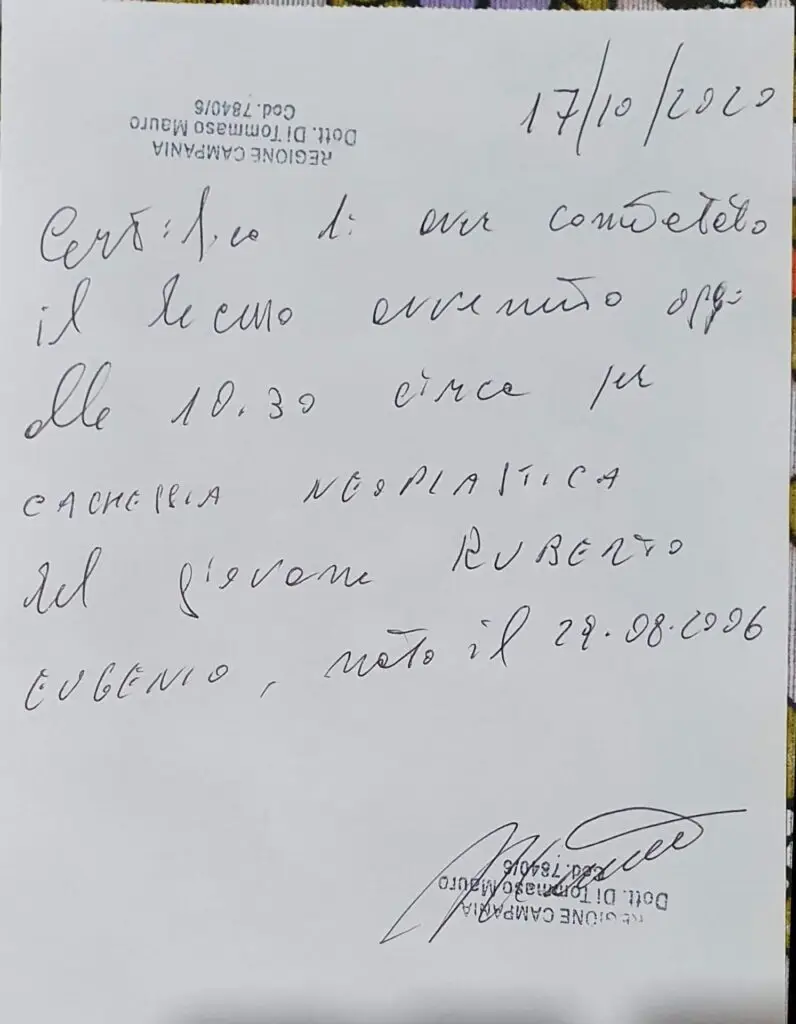 17/10/2020
REGIONE CAMPANIA
Dott. Di Tommaso Mauro
Cod. 7840/6
Certifico di aver constatato
il decesso avvenuto oggi
alle 10.30 circa per
CACHESSIA NEOPLASTICA
del giovane RUBERTO
EUGENIO, nato il 29.08.2006
REGIONE CAMPANIA
Dott. Di Tommaso Mauro
Cod. 7840/6